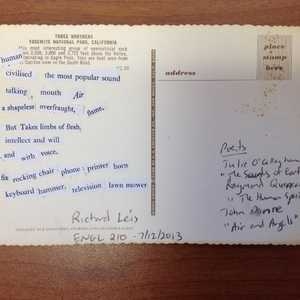 THREE BROTHERS
YOSEMITE NATIONAL PARK, CALIFORNIA
most interesting group of symmetrical rock
human
civilised the most popular sound
talking mouth Air
a shapeless overfraught, flame,
But Takes limbs of flesh,
intellect and will
and with voice,
fix rocking chair phone printer horn
keyboard hammer, television lawn mower
Richard Leis
ENGL 210 - 7/12/2013
place
stamp
here
address
Poets
Julie O'Callaghan
"The Sounds of Earth
Raymond
"The Human
John Donne
"Air and Angels